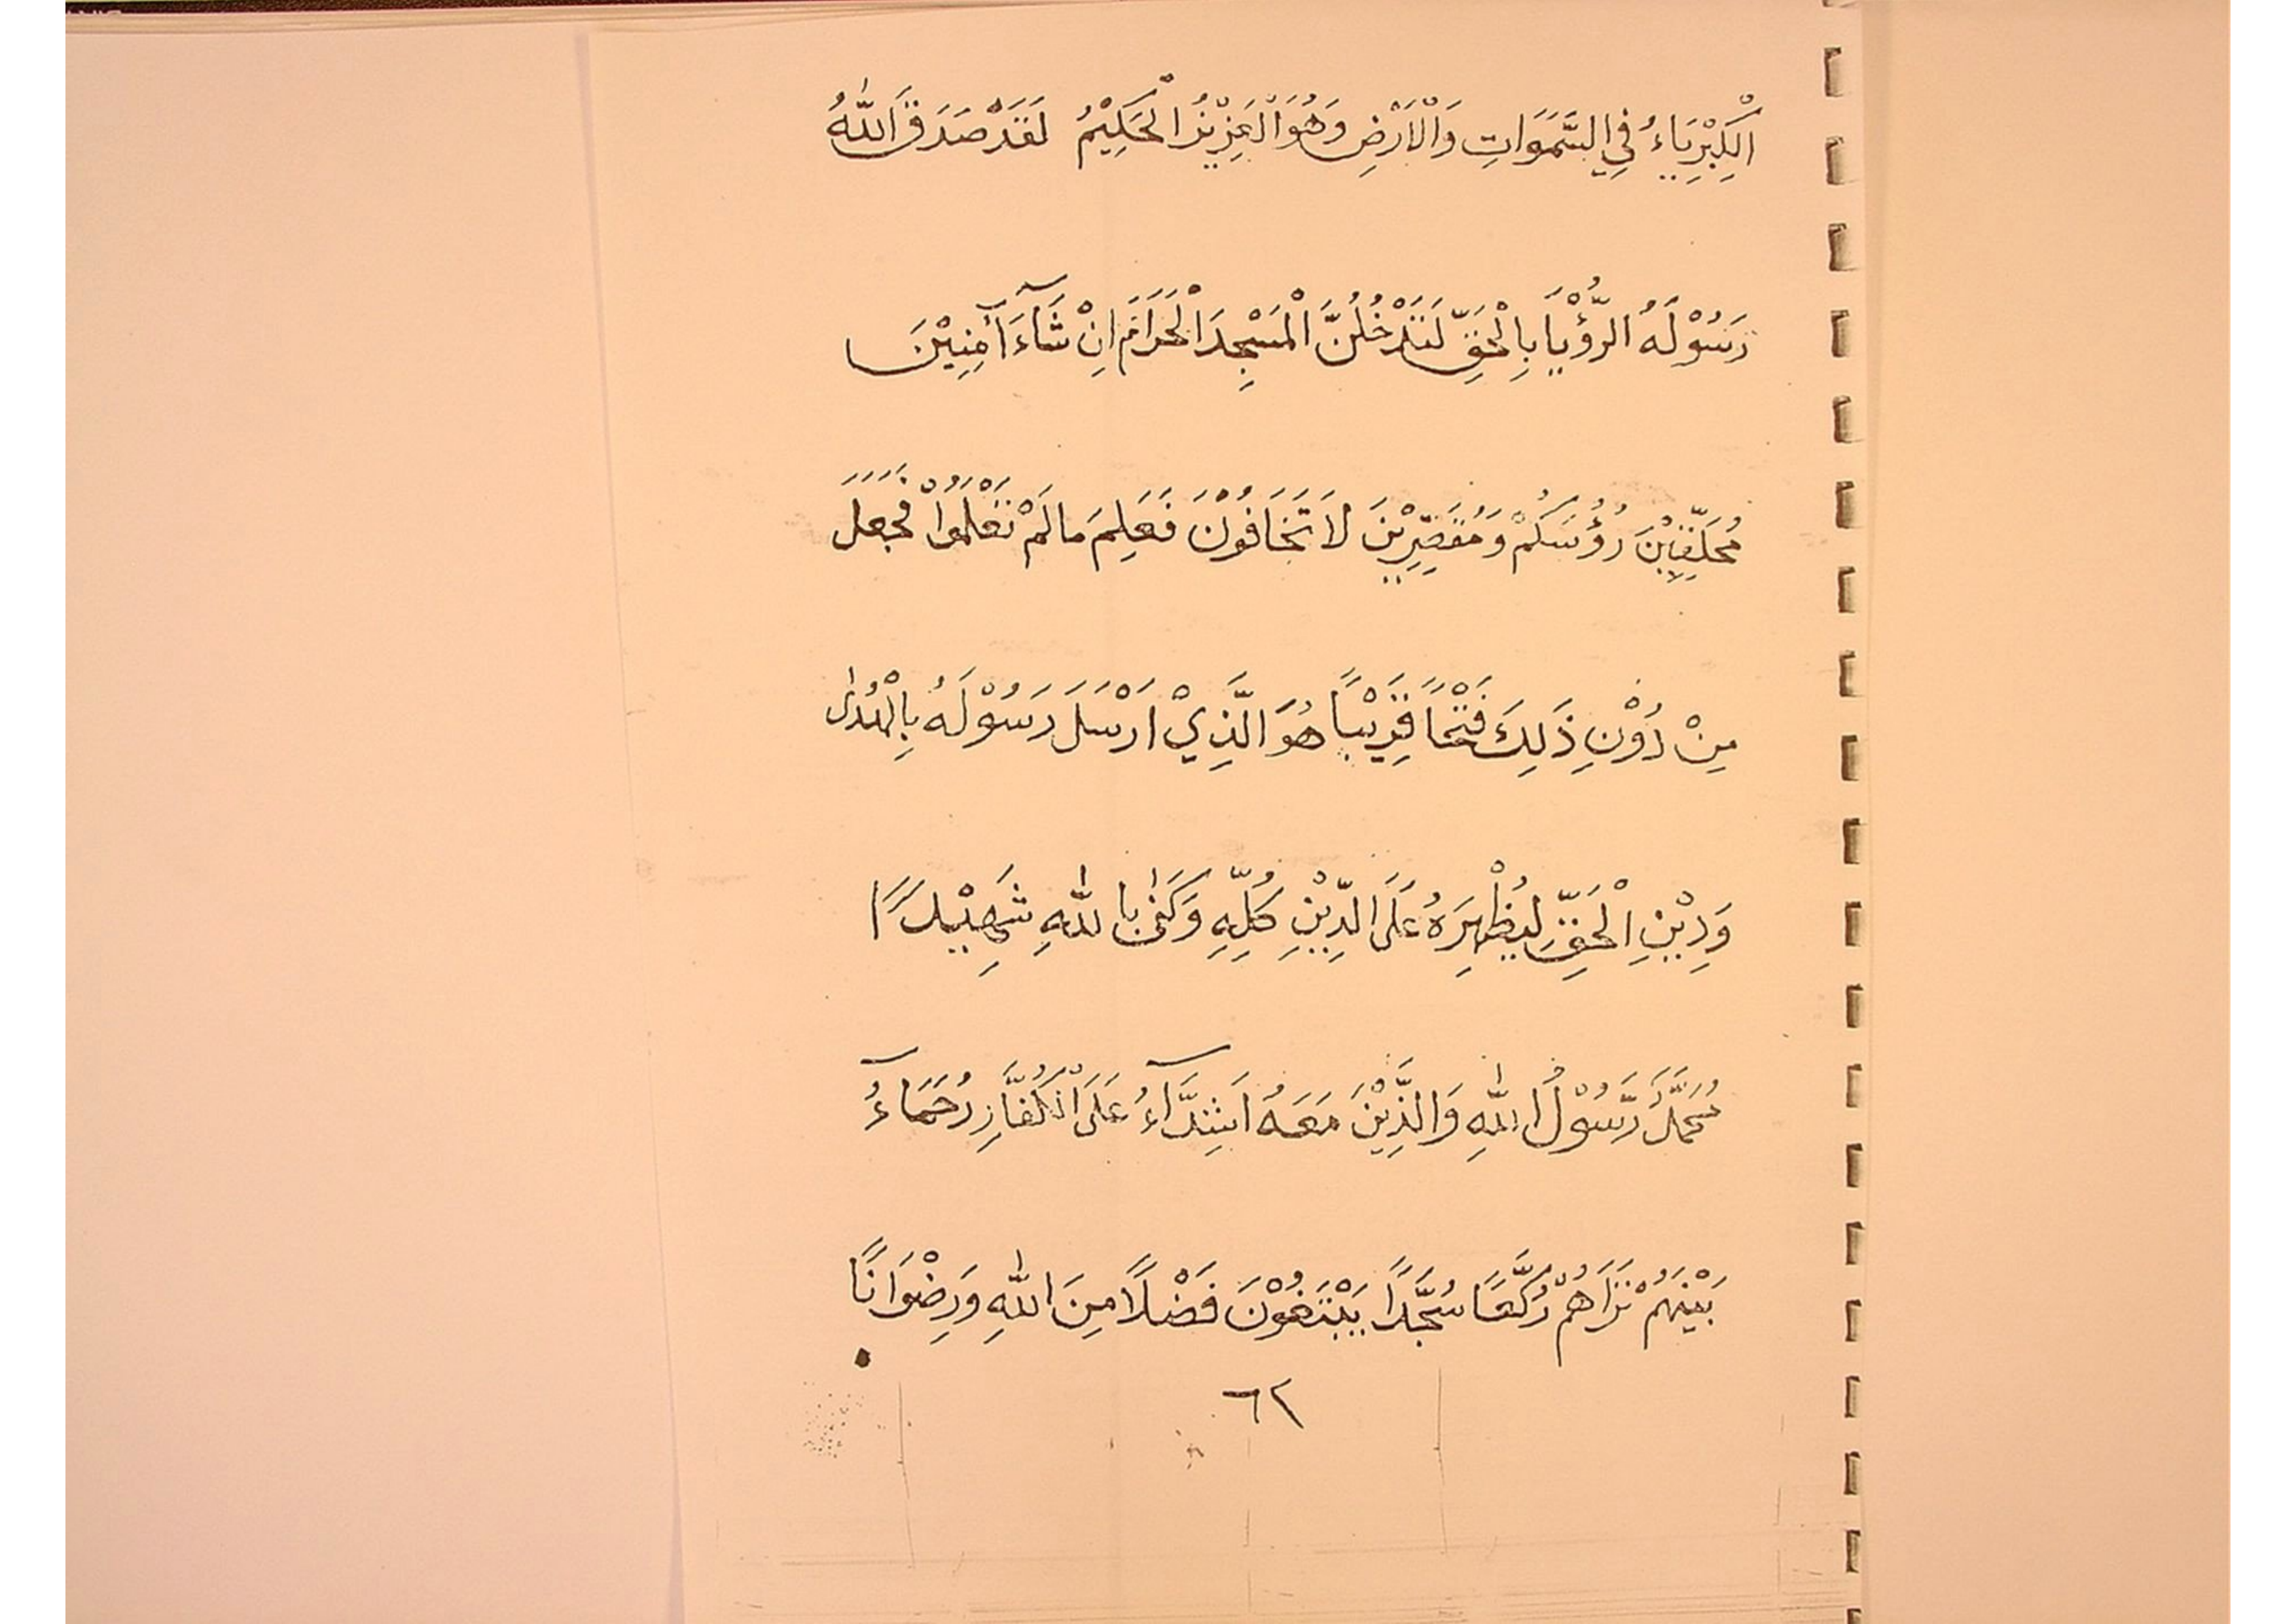 الْكِبْرِيَاءُ فِي السَّمَوَاتِ وَالْاَرْضِ وَهُوَ الْعَزِيْزُ الْحَكِيْمُ لَقَدْ صَدَقَ اللّٰهُ
رَسُوْلَهُ الرُّؤْيَا بِالْحَقِّ لَتَدْخُلُنَّ الْمَسْجِدَ الْحَرَامَ اِنْ شَآءَ آمِنِيْنَ
مُحَلِّقِيْنَ رُؤُسَكُمْ وَمُقَصِّرِيْنَ لَا تَخَافُوْنَ فَعَلِمَ مَا لَمْ تَعْلَمُوْا فَجَعَلَ
مِنْ دُوْنِ ذَلِكَ فَتْحًا قَرِيْبًا هُوَ الَّذِيْ اَرْسَلَ رَسُوْلَهُ بِالْهُدٰى
وَدِيْنِ الْحَقِّ لِيُظْهِرَهُ عَلَى الدِّيْنِ كُلِّهِ وَكَفٰى بِاللّٰهِ شَهِيْدًا
مُحَمَّدٌ رَّسُوْلُ اللّٰهِ وَالَّذِيْنَ مَعَهُ اَشِدَّآءُ عَلَى الْكُفَّارِ رُحَمَآءُ
بَيْنَهُمْ تَرَاهُمْ رُكَّعًا سُجَّدًا يَبْتَغُوْنَ فَضْلًا مِنَ اللّٰهِ وَرِضْوَانًا
٦٢